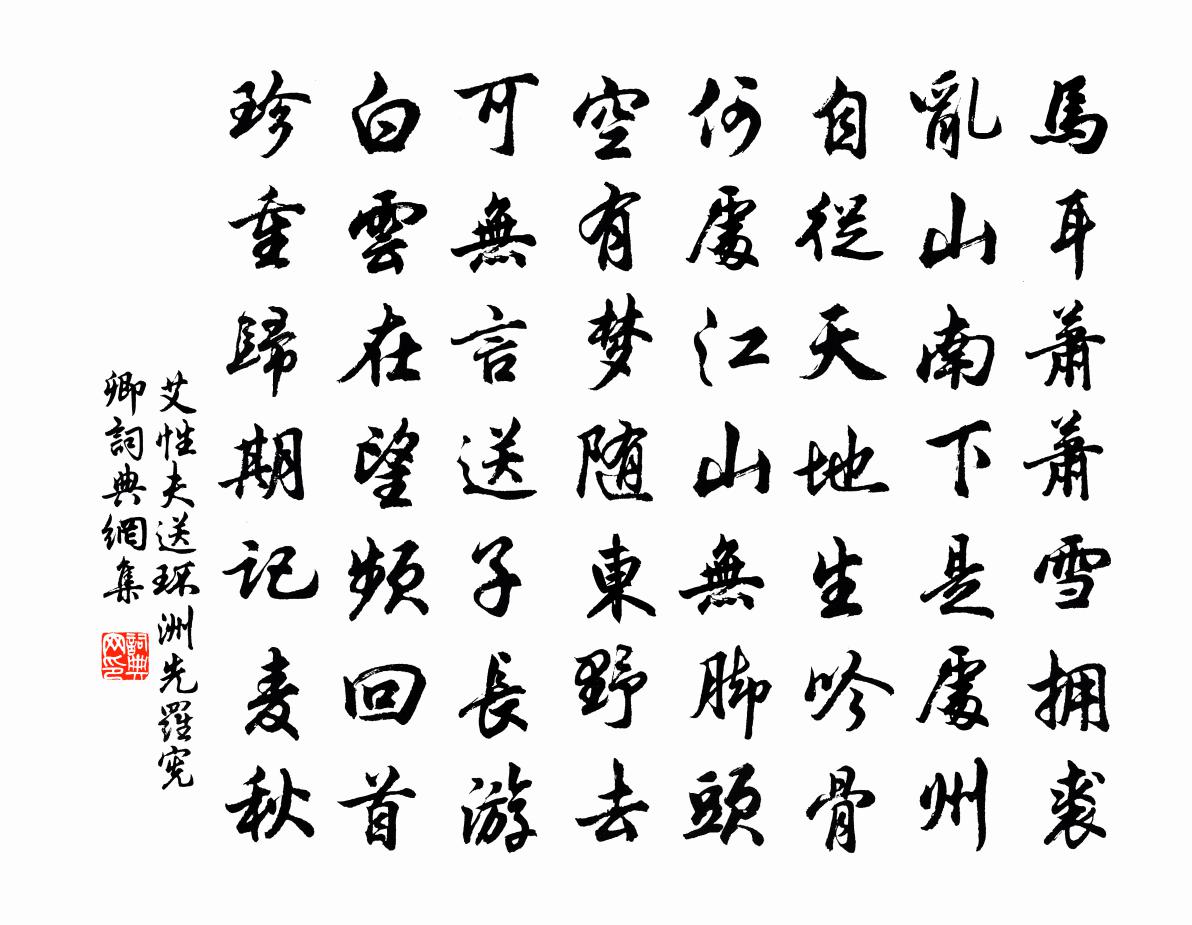 馬耳蕭蕭雪拥裘
亂山南下是處州
自從天地生吟骨
何處江山無脚頭
空有梦随東野去
可無言送子長游
白雲在望頻回首
珍重歸期記麦秋
艾性夫送环洲先羅宪
卿詞典網集
詞典网印